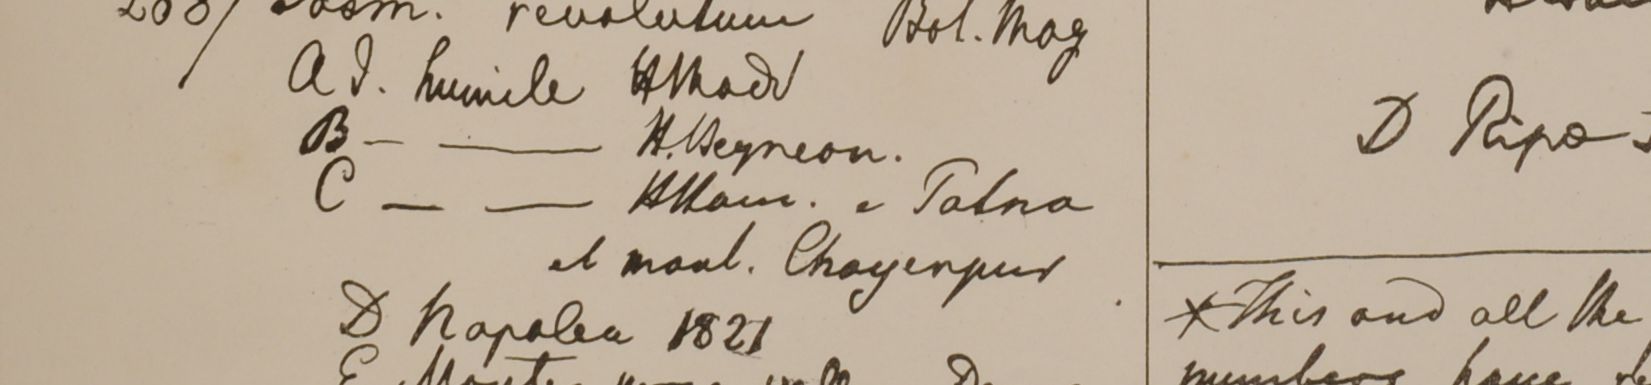 Jasm. revolutum Bot. Mag
A J. humile HMadr
B — — H. Heynean.
C — — HHam. e Patna
et mont. Chayenpur
D Napalea 1821
D Ripa
*This and all the
numbers have